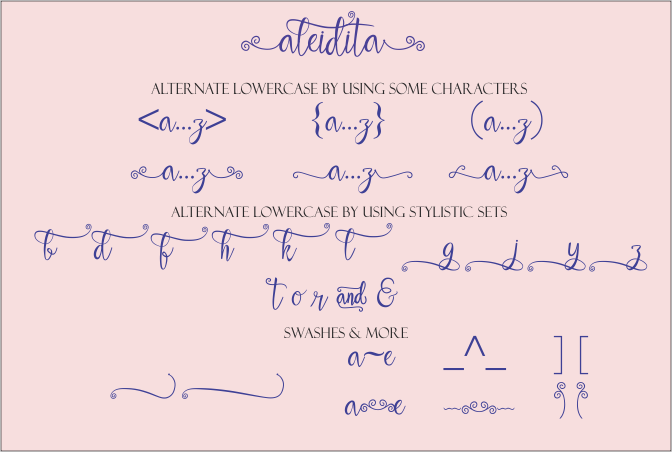 aleidita
ALTERNATE LOWERCASE BY USING SOME CHARACTERS
<a...z> {a...z} (a...z)
a...z a...z a...z
ALTERNATE LOWERCASE BY USING STYLISTIC SETS
b d f h k l g j y z
t o r and &
SWASHES & MORE
a~e _^_ ] [
a e